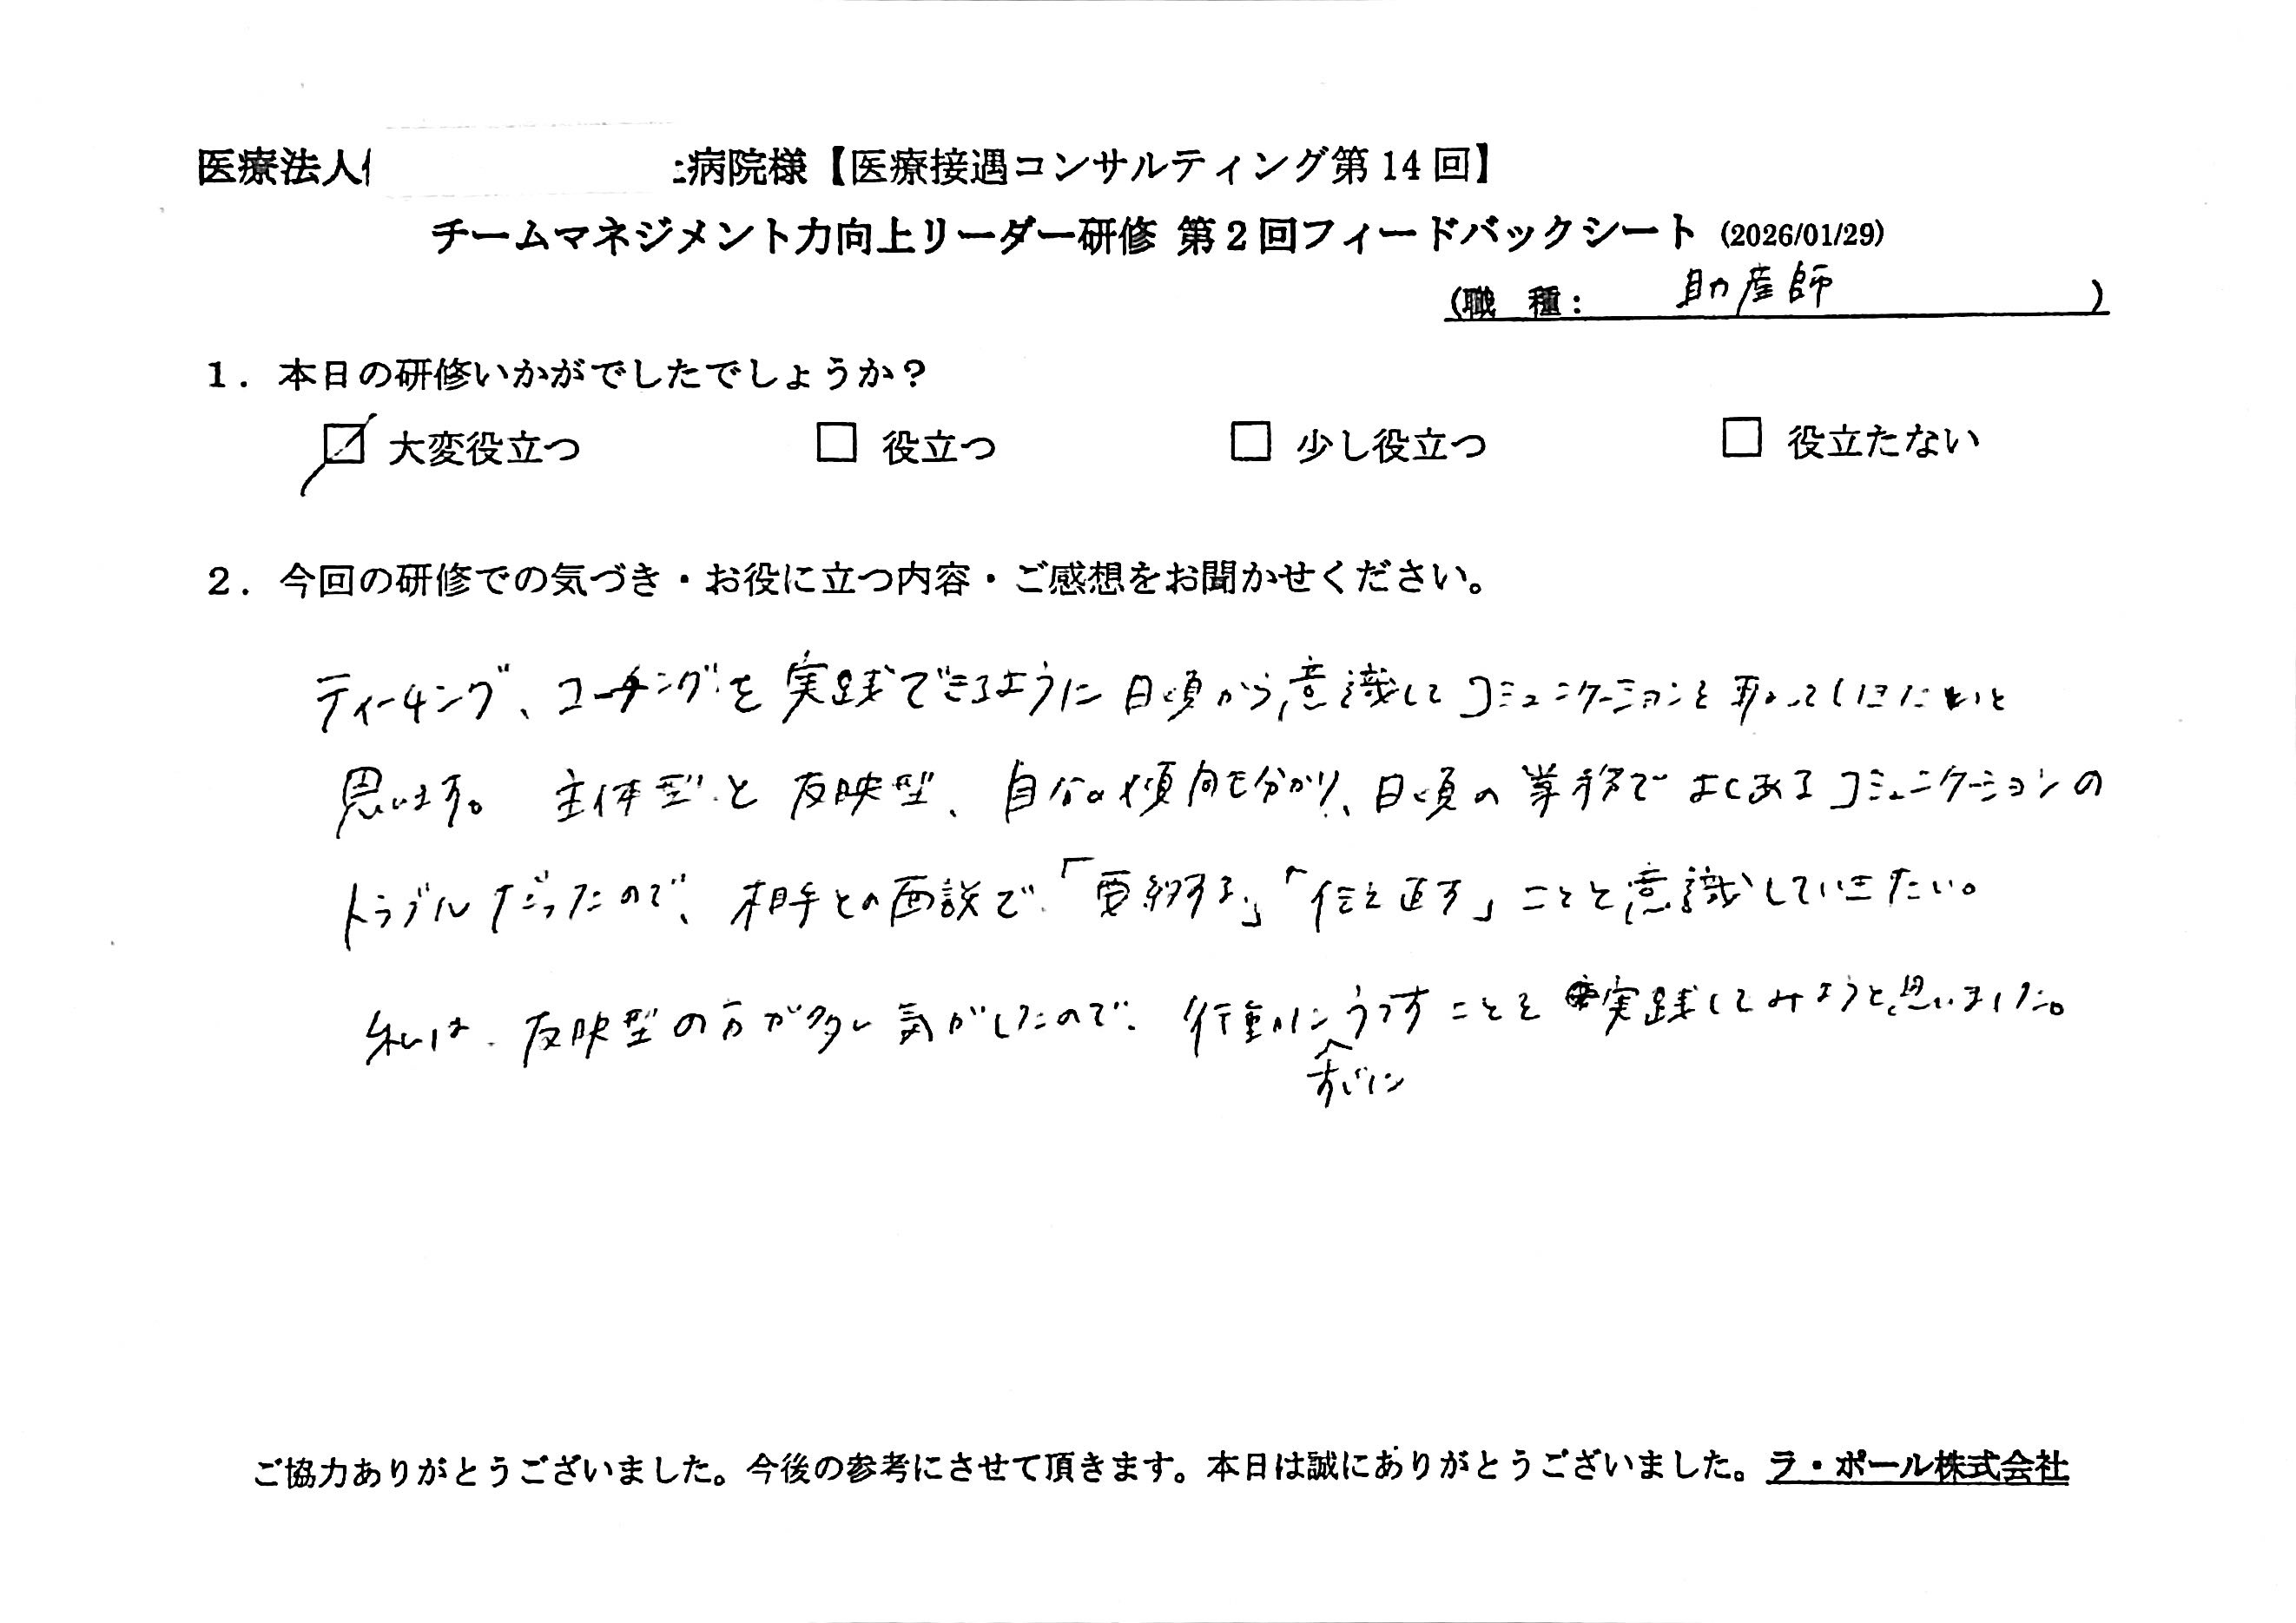 医療法人
病院様【医療接遇コンサルティング第14回】
チームマネジメント力向上リーダー研修 第2回フィードバックシート (2026/01/29)
(職 種: 助産師 )
1. 本日の研修いかがでしたでしょうか?
☑ 大変役立つ □ 役立つ □ 少し役立つ □ 役立たない
2. 今回の研修での気づき・お役に立つ内容・ご感想をお聞かせください。
ティーチング、コーチングを実践できるように日頃から意識してコミュニケーションを取っていきたいと
思います。 主体型と反映型、自分の傾向も分かり、日頃の業務でよくあるコミュニケーションの
トラブルだったので、相手との面談で「要約する」「伝え直す」ことを意識していきたい。
私は、反映型の方が多い気がしたので、行動にうつすことを実践してみようと思いました。
すぐに
ご協力ありがとうございました。今後の参考にさせて頂きます。本日は誠にありがとうございました。ラ・ポール株式会社